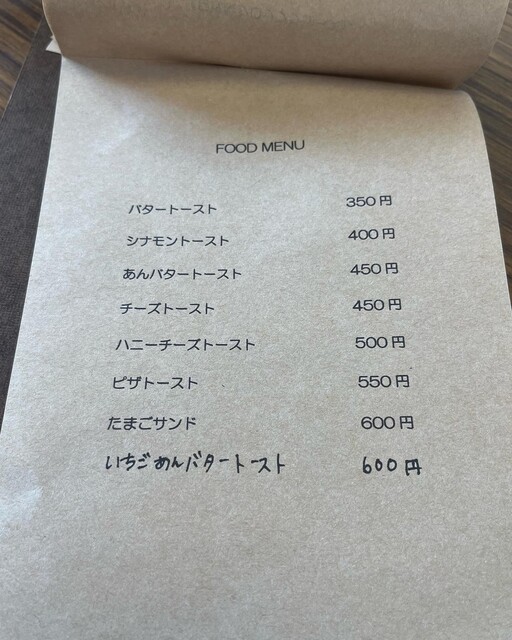 FOOD MENU
バタートースト 350円
シナモントースト 400円
あんバタートースト 450円
チーズトースト 450円
ハニーチーズトースト 500円
ピザトースト 550円
たまごサンド 600円
いちごあんバタートースト 600円